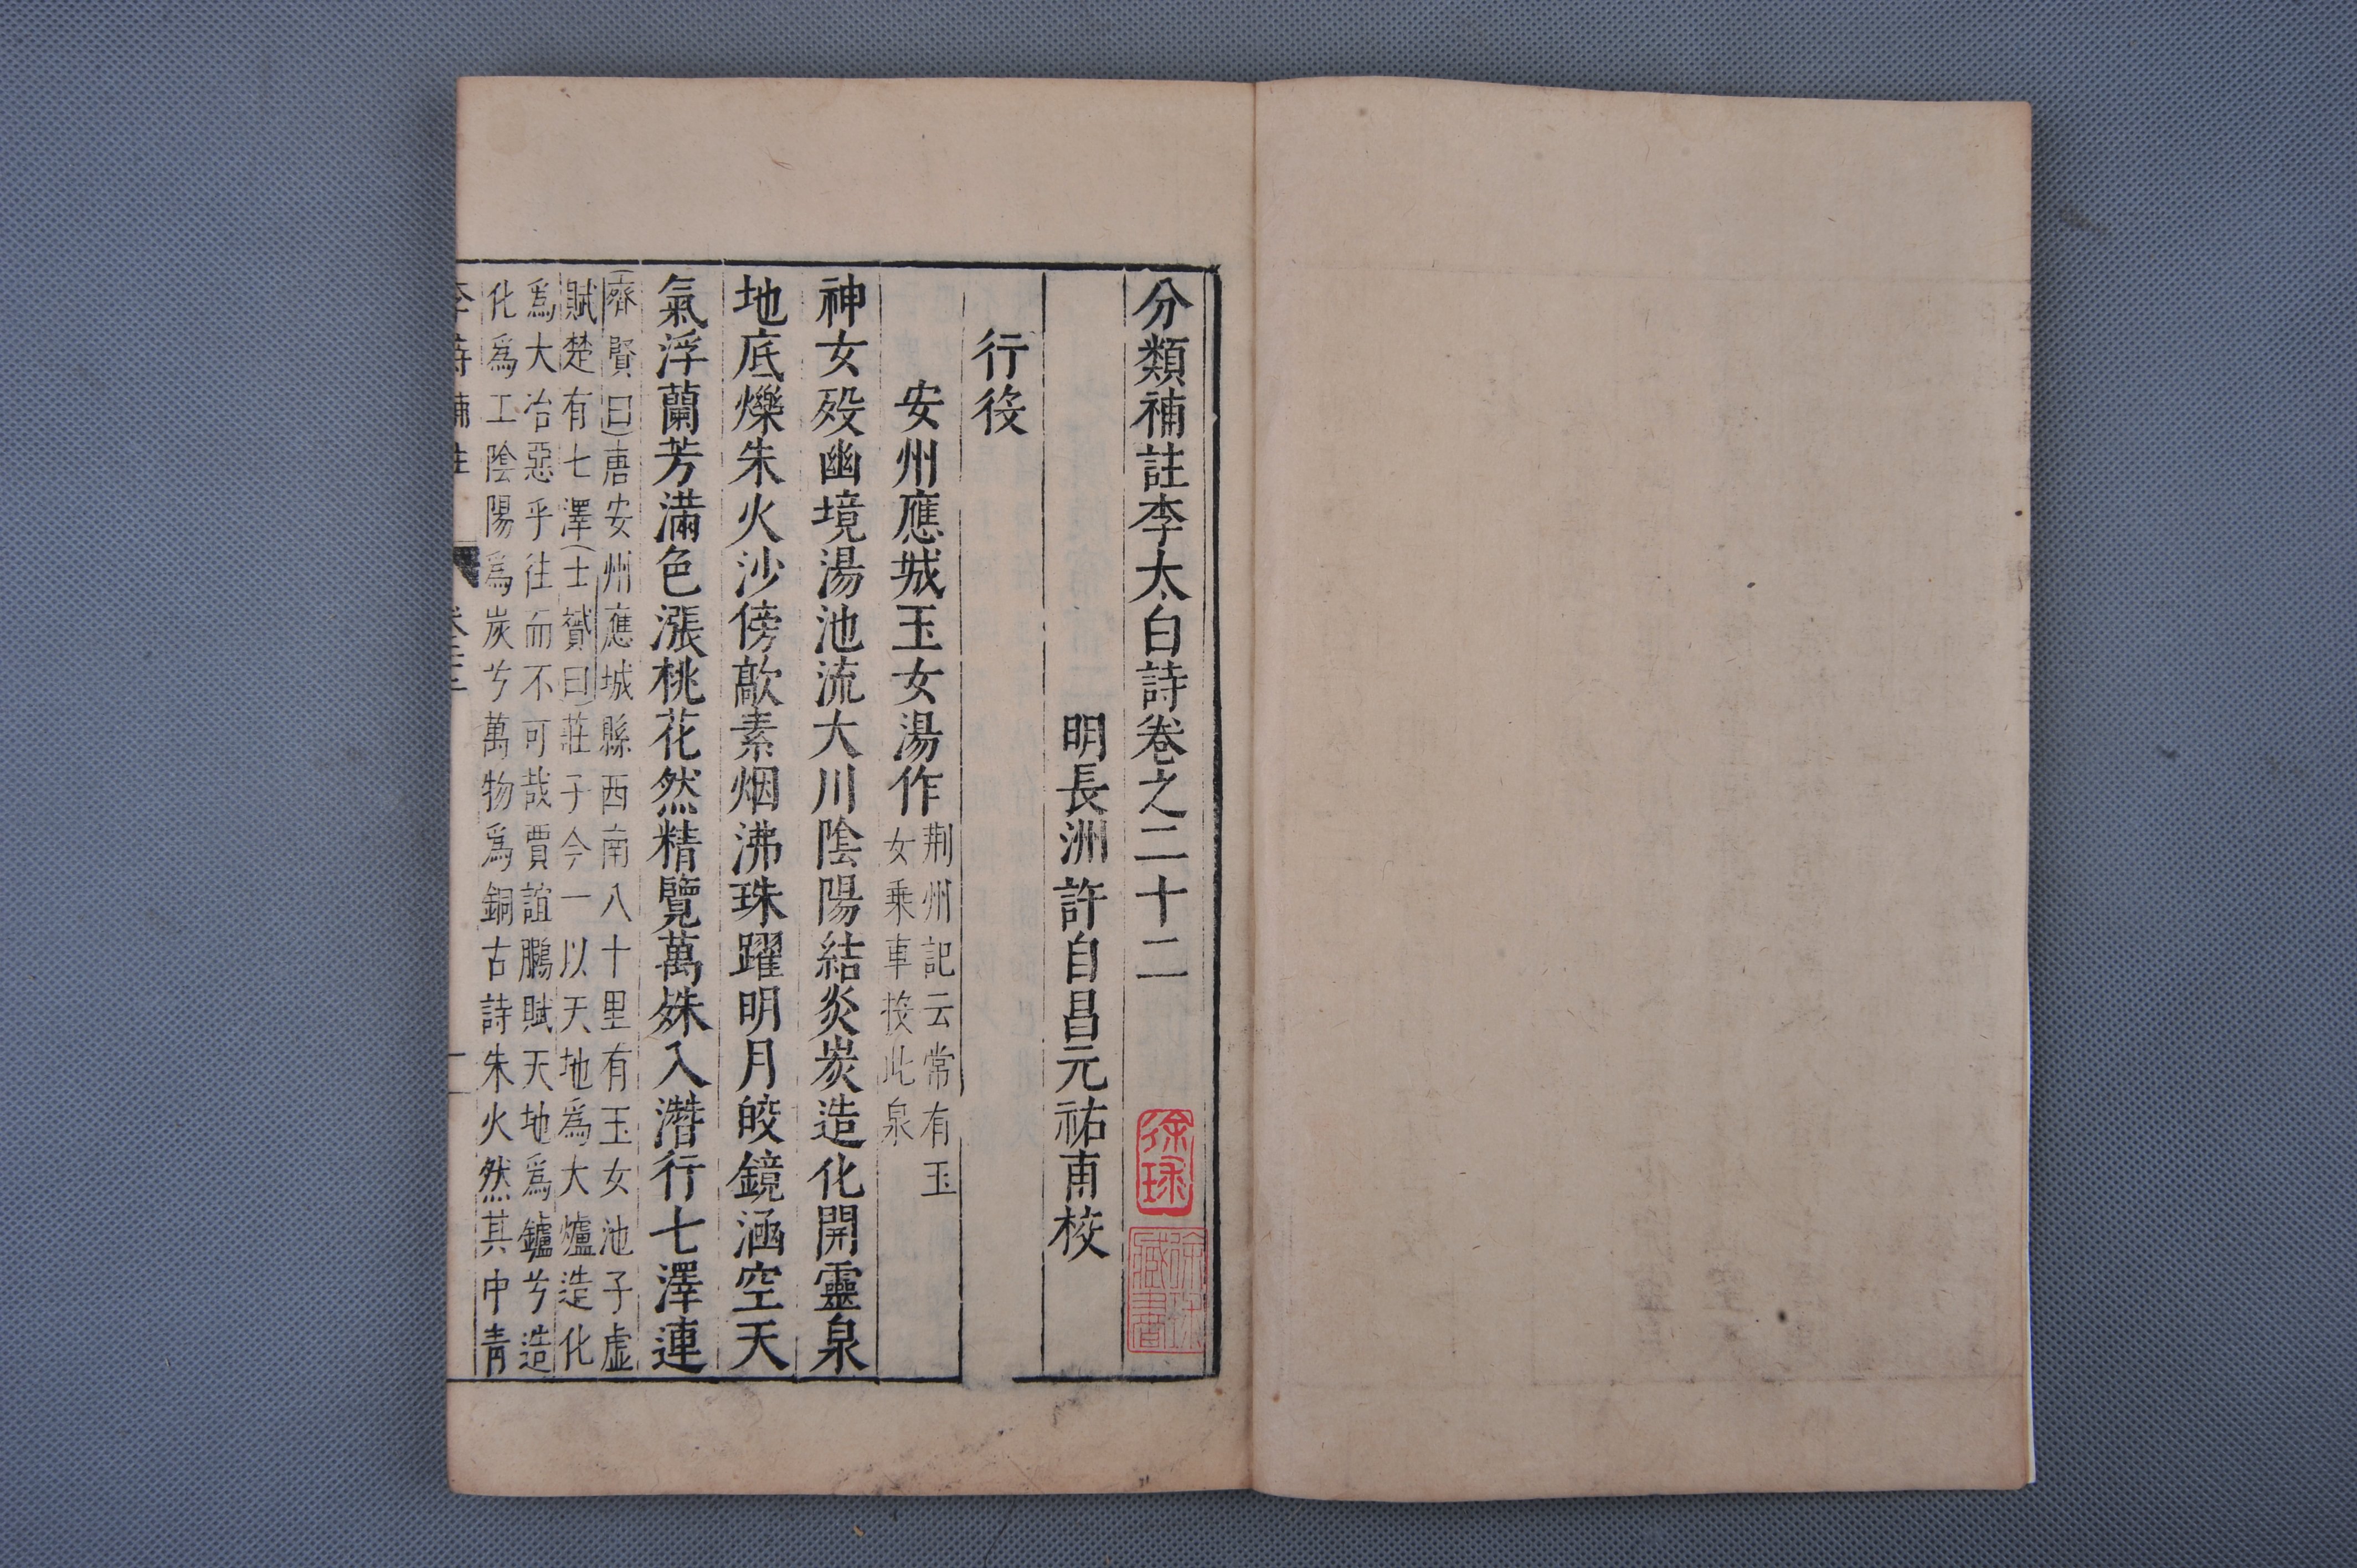 分類補註李太白詩卷之二十二
徐球
徐球藏書
明長洲許自昌元祐甫校
行役
安州應城玉女湯作
荆州記云常有玉
女乘車投此泉
神女歿幽境湯池流大川陰陽結炎炭造化開靈泉
地底爍朱火沙傍歊素烟沸珠躍明月皎鏡涵空天
氣浮蘭芳滿色漲桃花然精覽萬殊入潛行七澤連
齊賢曰唐安州應城縣西南八十里有玉女池子虛
賦楚有七澤士贇曰莊子今一以天地為大爐造化
為大冶惡乎往而不可哉賈誼鵬賦天地為鑪兮造
化為工陰陽為炭兮萬物為銅古詩朱火然其中青